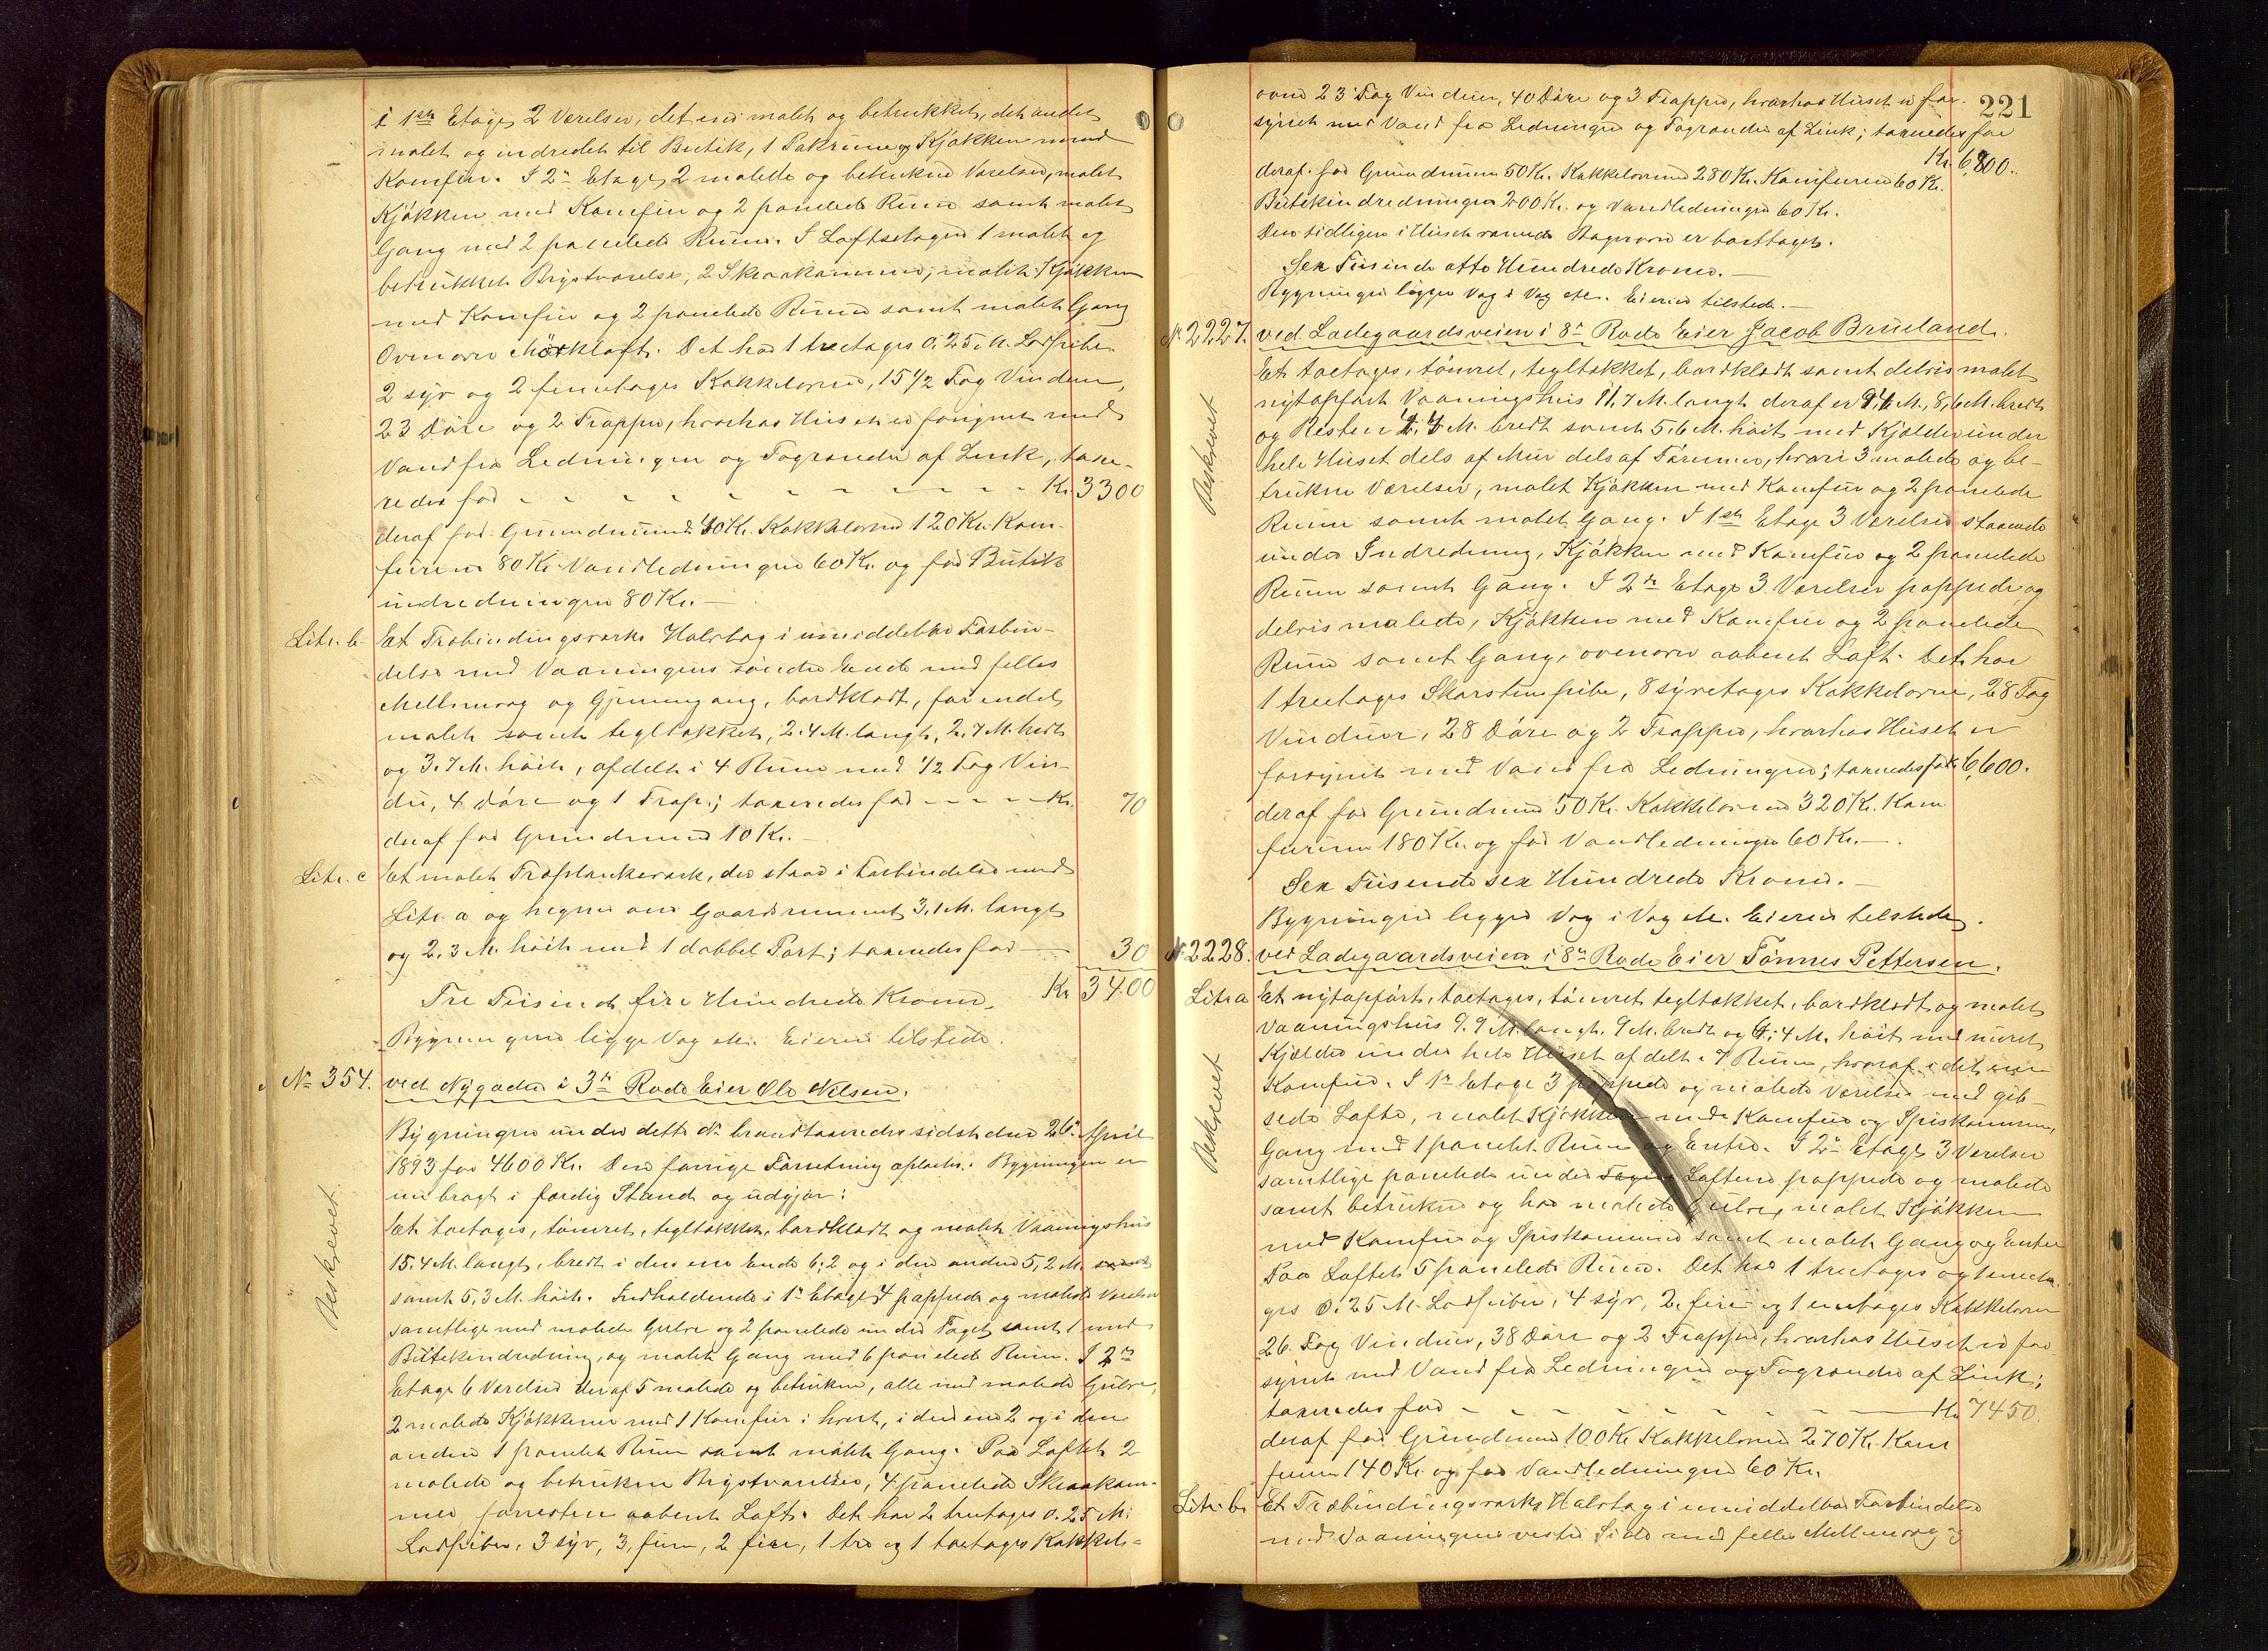 i 1ste Etage 2 Værelser, det ene malet og betrukket, det andet
malet og indredet til Butik, 1 Pakrum og Kjøkken med
Komfur. I 2den Etage, 2 malede og betrukne Værelser, malet
Kjøkken med Komfur og 2 panelede Rum samt malet
Gang med 2 panelede Rum. I Loftsetagen 1 malet og
betrukket Brystværelse, 2 Skraakammer, malet Kjøkken
med Komfur og 2 panelede Rum samt malet Gang
Ovenover Mørkloft. Det har 1 treetages 0.25 M. Lodpibe.
2 syv og 2 femetages Kakkelovne, 15 1/2 Fag Vinduer,
23 Døre og 2 Trapper, hvorhos Huset er forsynet med
Vand fra Ledningen og Tagrender af Zink, taxe-
redes for - - - - - - - - - - Kr. 3300
deraf for Grundmuren 40 Kr. Kakkelovne 120 Kr. Kom-
furene 80 Kr. Vandledningen 60 Kr. og for Butik
indredningen 80 Kr. —
Litr. b. Et Træbindingsværks Halvtag i umiddelbar Forbin-
delse med Vaaningens søndre Ende med fælles
Mellemvæg og Gjennemgang, bordklædt, for endel
malet samt tegltækket, 2.4 M. langt, 2.7 M. bredt
og 3.7 M. høit, afdelt i 4 Rum med 1/2 Fag Vin-
du, 4 Døre og 1 Trap; taxeredes for - - - - Kr. 70
deraf for Grundmur 10 Kr. —
Litr. c Et malet Træplankeværk, der staar i Forbindelse med
Litr. a og hegner om Gaardsrummet 3.1 M. langt
og 2.3 M. høit med 1 dobbel Port; taxeredes for — 30
Kr. 3400
Tre Tusinde fire Hundrede Kroner.
Bygningerne ligge Væg etc. Eieren tilstede.
No 354. ved Nygaden i 3de Rode Eier Ole Nilsen.
Bygningen under dette No brandtaxeredes sidst den 26de April
1893 for 4600 Kr. Den forrige Forretning oplæstes. Bygningen er
nu bragt i færdig Stand og udgjør:
Beskrevet.
Et toetages, tømret, tegltækket, bordklædt og malet Vaaningshus
15.4 M. langt, bredt i den ene Ende 6.2 og i den anden 5,2 M.
samt 5,3 M. høit. Indholdende i 1ste Etage 4 pappede og malede Værelser
samtlige med malede Gulve og 2 panelede under Taget samt 1 med
Butikindredning, og malet Gang med 6 panelede Rum. I 2den
Etage 6 Værelser deraf 5 malede og betrukne, alle med malede Gulve,
2 malede Kjøkkener med 1 Komfur i hvert, i det ene 2 og i den
anden 1 panelet Rum samt malet Gang. Paa Loftet 2
malede og betrukne Brystværelser, 4 panelede Skraakam-
mer forresten aabent Loft. Det har 2 treetages 0.25 M.
Lodpiber, 3 syv, 3, fem, 2 fire, 1 tre og 1 toetages Kakkel-
221
ovne 23 Fag Vinduer, 40 Døre og 3 Trapper, hvorhos Huset er for-
synet med Vand fra Ledningen og Tagrender af Zink; taxeredes for
Kr. 6,800.
deraf for Grundmuren 50 Kr. Kakkelovnene 280 Kr. Komfurene 60 Kr.
Butikindredningen 200 Kr. og Vandledningen 60 Kr.
Den tidligere i Huset værende Bagerovn er borttaget.
Sex Tusinde otte Hundrede Kroner. —
Bygningen ligger Væg i Væg etc. Eieren tilstede. —
No 2227. ved Ladegaardsveien i 8de Rode Eier Jacob Brueland.
Beskrevet
Et toetages, tømret, tegltækket, bordklædt samt delvis malet
nyopført Vaaningshus 11,7 M. langt deraf er M., 8,6 M. bredt
og Resten M. bredt samt 5,6 M. høit med Kjælder under
hele Huset dels af Mur dels af Tømmer, hvori 3 malede og be-
trukne Værelser, malet Kjøkken med Komfur og 2 panelede
Rum samt malet Gang. I 1ste Etage 3 Værelser staaende
under Indredning, Kjøkken med Komfur og 2 panelede
Rum samt Gang. I 2den Etage 3 Værelser pappede og
delvis malede, Kjøkken med Komfur og 2 panelede
Rum samt Gang, ovenover aabent Loft. Det har
1 treetages Skorstenspibe, 8 syvetages Kakkelovne, 28 Fag
Vinduer, 28 Døre og 2 Trapper, hvorhos Huset er
forsynet med Vand fra Ledningen; taxeredes for Kr. 6,600.
deraf for Grundmur 50 Kr. Kakkelovnene 320 Kr. Kom
furene 180 Kr. og for Vandledningen 60 Kr. —
Sex Tusinde sex Hundrede Kroner. —
Bygningen ligger Væg i Væg etc. Eieren tilstede.
No 2228. ved Ladegaardsveien i 8de Rode Eier Tønnes Pettersen.
Litr. a Et nyopført, toetages, tømret tegltækket, bordklædt og malet
Beskrevet
Vaaningshus 9.9 M. langt, 9 M. bredt og 6.4 M. høit med muret
Kjælder under hele Huset afdelt i 7 Rum, hvoraf i det ene
Komfur. I 1ste Etage 3 pappede og malede Værelser med gib-
sede Lofte, malet Kjøkken med Komfur og Spiskammer,
Gang med 1 panelet Rum og Entre. I 2den Etage 3 Værelser
samtlige panelede under Lofterne pappede og malede
samt betrukne og har malede Gulve, malet Kjøkken
med Komfur og Spiskammer samt malet Gang og Entre
Paa Loftet 5 panelede Rum. Det har 1 treetages og 1 eneta-
ges 0.25 M. Lodpiber, 4 syv, 2 fire og 1 enetages Kakkelovn
26 Fag Vinduer, 38 Døre og 2 Trapper, hvorhos Huset er for
synet med Vand fra Ledningen og Tagrender af Zink;
taxeredes for - - - - - - - - Kr. 7450.
deraf for Grundmur 100 Kr. Kakkelovne 270 Kr. Kom
furene 140 Kr. og for Vandledningen 60 Kr.
Litr. b. Et Træbindingsværks Halvtag i umiddelbar Forbindelse
med Vaaningens vestre Side med fælles Mellemvæg og